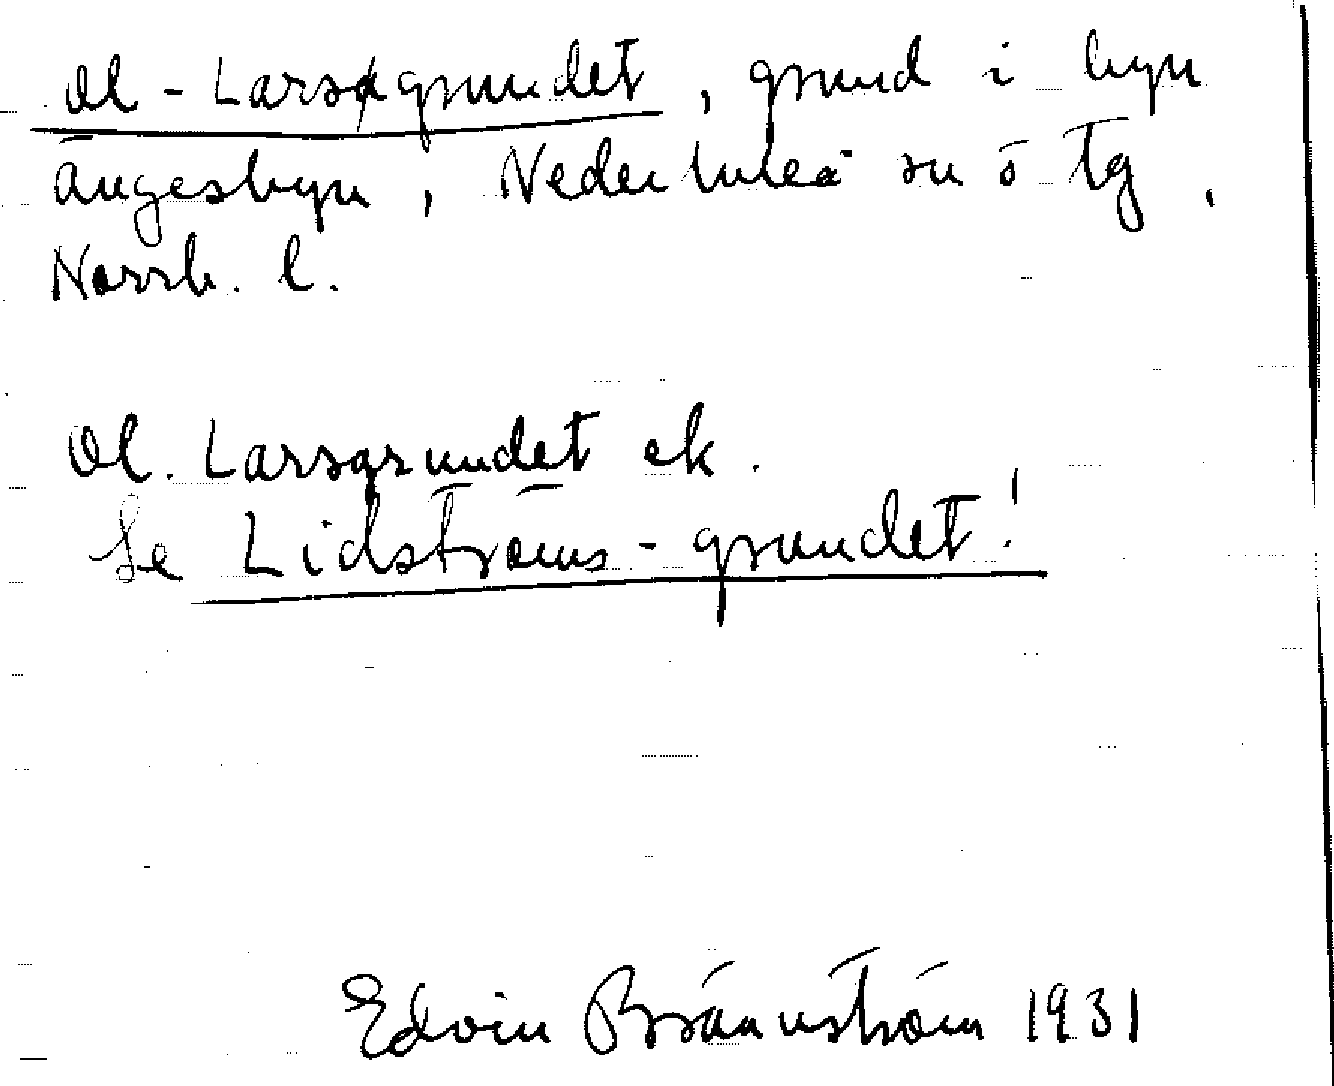 Ol-Larsgrundet, grund i byn
Ängesbyn, Nederluleå sn o tg,
Norrb. l.
Ol. Larsgrundet ek.
Se Lidströms-grundet!
Edvin Brännström 1931